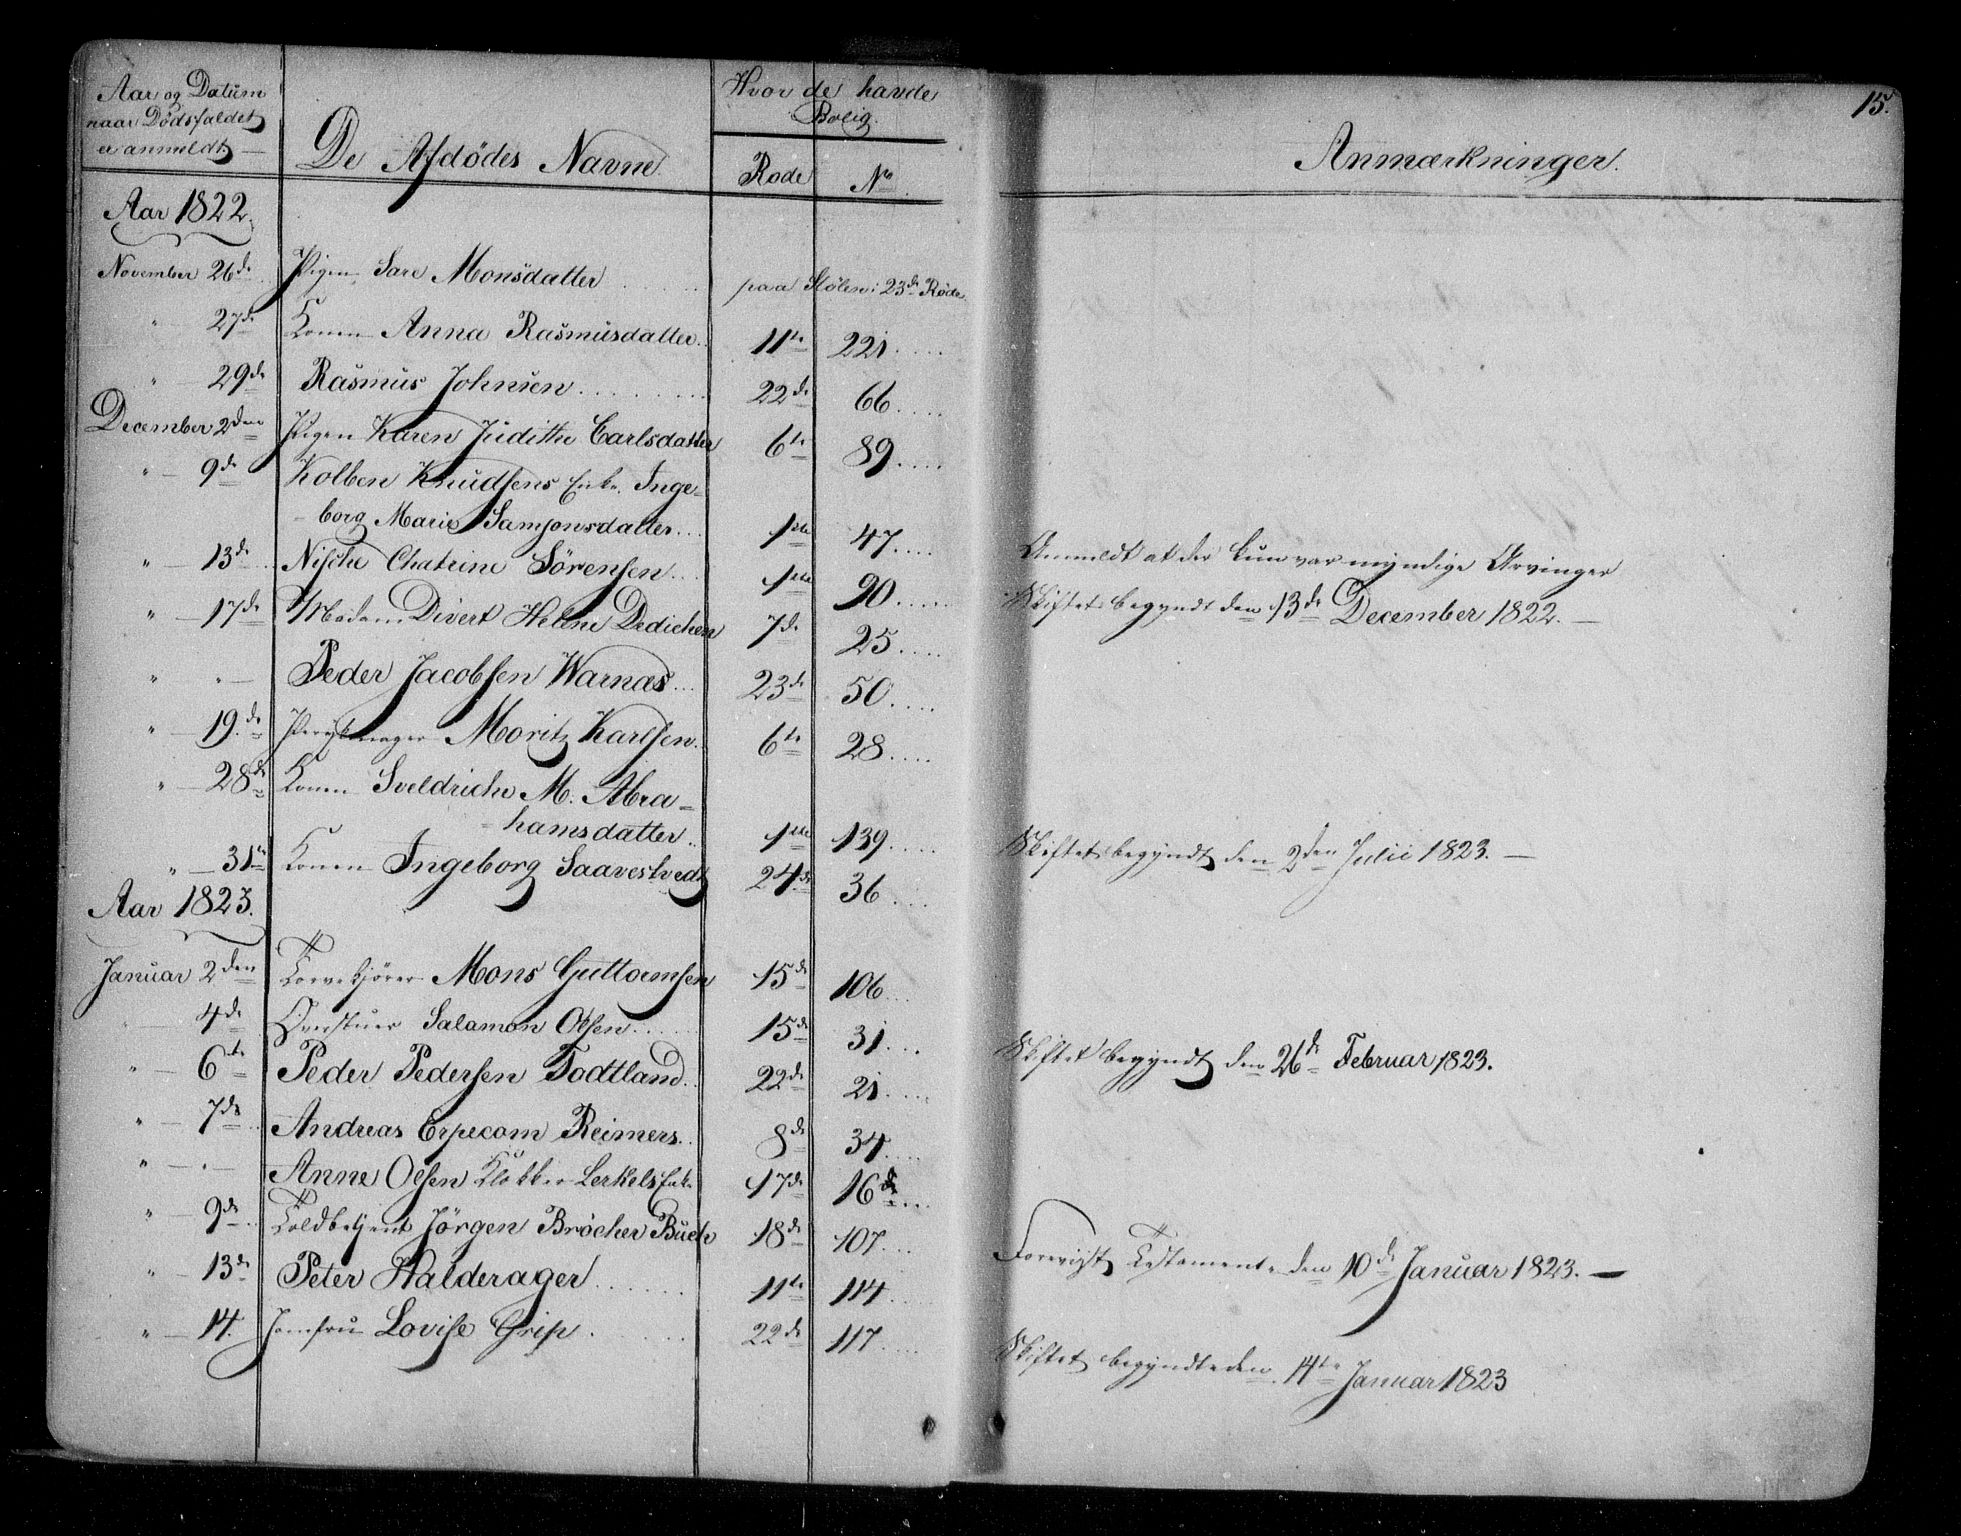 15.
Aar og Datum
naar Dødsfaldet
er anmeldt.
De Afdødes Navne.
Hvor de havde
Bolig.
Rode No
Anmærkninger.
Aar 1822.
November 26de Pigen Sare Monsdatter paa Stølen i 23de Rode
" 27de Konen Anna Rasmusdatter 11te 221
" 29de Rasmus Johnsen 22de 66
December 2den Pigen Karen Judithe Carlsdatter 6te 89
" 9de Kolben Knudsens Enke, Inge-
borg Marie Samsonsdatter 1ste 47 Anmeldt at der kun var myndige Arvinger
" 13de Chatrine Sørensen 1ste 90 Skiftet begyndt den 13de December 1822.
" 17de Madam Divert Helene Dedichen 7de 25
" " Peder Jacobsen Warnæs 23de 50
" 19de Moritz Karlsen 6te 28
" 28de Konen Sveldriche M. Abra-
hamsdatter 1ste 139 Skiftet begyndt den 2den Julii 1823.
" 31te Konen Ingeborg Saavestvedt 24de 36
Aar 1823.
Januar 2den Torvekjører Mons Guttormsen 15de 106
" 4de Salamon Olsen 15de 31 Skiftet begyndt den 26de Februar 1823.
" 6te Peder Pedersen Todtland 22de 21
" 7de Andreas Erpecom Reimers 8de 34
" " Anne Olsen Klokker Lerkels Enke 17de 16de
" 9de Toldbetjent Jörgen Bröcher Buch 18de 107 Foreviist Testamente den 10de Januar 1823.
" 13de Peter Halderager 11te 114
" 14. Jomfru Lovise Grip 22de 117 Skiftet begyndte den 14te Januar 1823